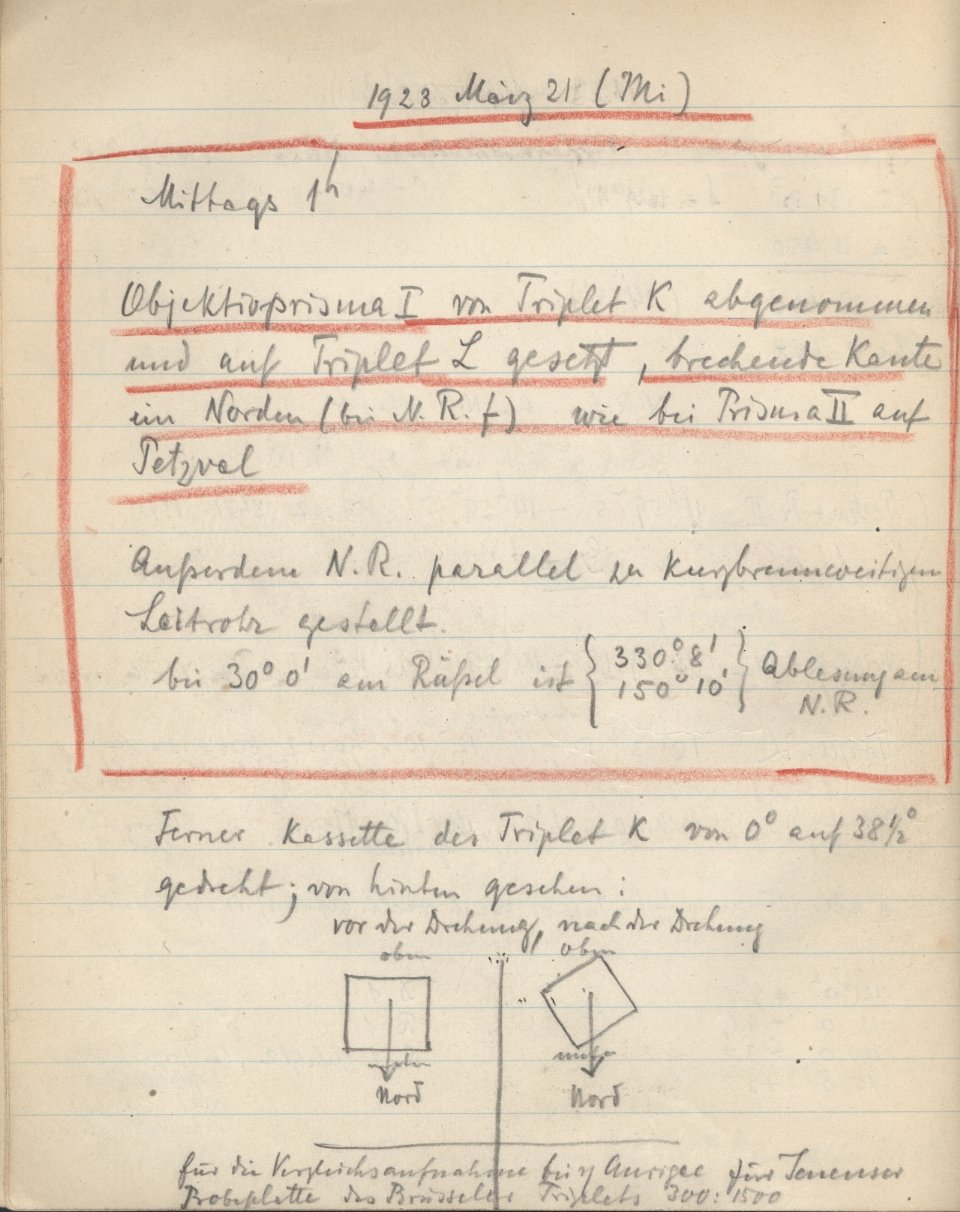 1923 März 21 (Mi)
Mittags 1h
Objektivprisma I von Triplet K abgenommen
und auf Triplet L gesetzt, brechende Kante
im Norden (bei N. R. f) wie bei Prisma II auf
Petzval
Außerdem N.R. parallel zu kurzbrennweitigem
Leitrohr gestellt.
bei 30° 0' am Rüßel ist { 330° 8' } Ablesung am
150° 10' N.R.
Ferner Kassette des Triplet K von 0° auf 38½°
gedreht; von hinten gesehen:
vor der Drehung, nach der Drehung
oben oben
unten unten
Nord Nord
für die Vergleichsaufnahme bei η Aurigae für Jenenser
Probeplatte des Brüsseler Triplets 300:1500